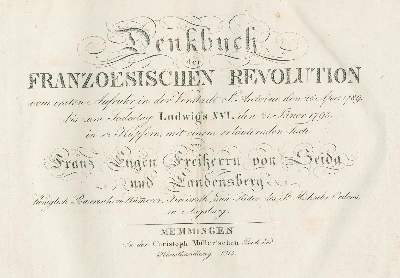 Denkbuch
der
FRANZOESISCHEN REVOLUTION
vom ersten Aufruhr in der Vorstadt St. Antoine den 28. April 1789.
bis zum Todestag Ludwigs XVI. den 21. Jäner 1793.
in 42 Kupfern, mit einem erläuternden Texte
Franz Eugen Freiherrn von Seida
und Landensberg
Königlich Baierischem Kämmerer, des St. Michaels Ordens
in Augsburg.
MEMMINGEN
In der Christoph Müller'schen Buch und
Kunsthandlung